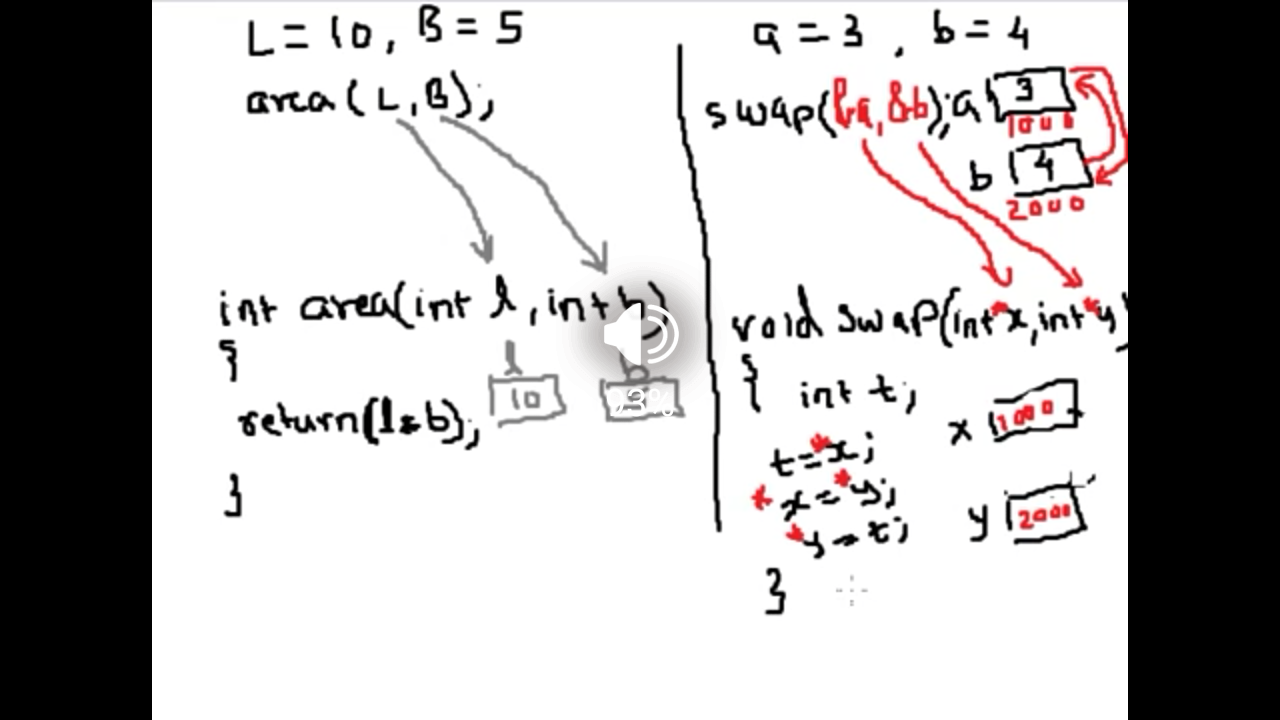 L = 10, B = 5
area(L, B);
int area(int l, int b)
{
l
b
10
return(l*b);
}
93%
a = 3, b = 4
swap(&a, &b);
a 3
1000
b 4
2000
void swap(int *x, int *y)
{ int t;
x 1000
t = *x;
*x = *y;
y 2000
*y = t;
}